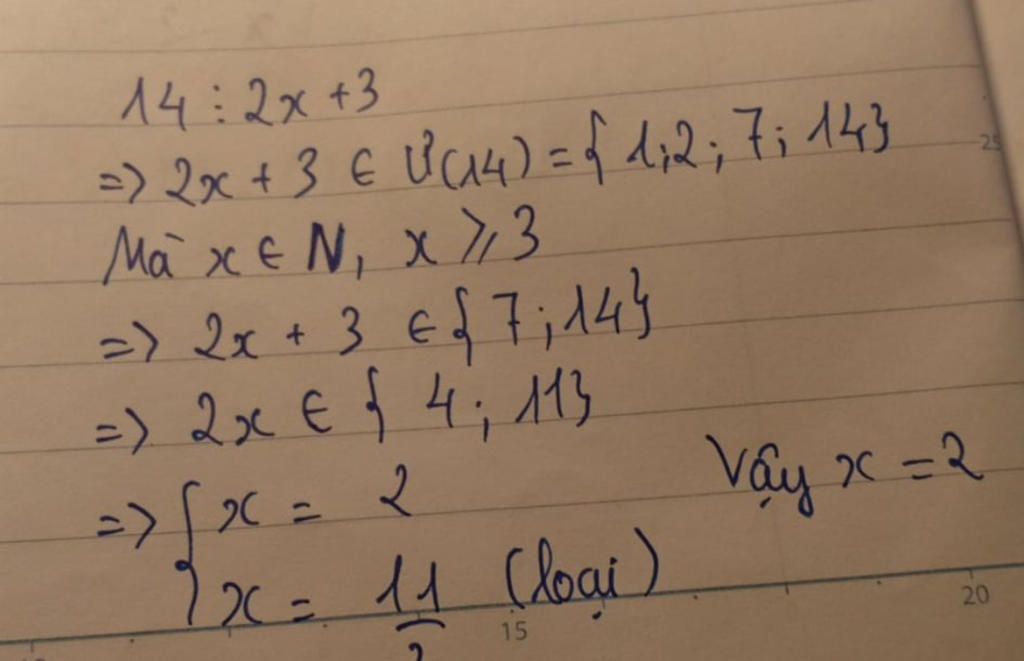 14 ⋮ 2x + 3
=> 2x + 3 ∈ Ư(14) = { 1; 2; 7; 14}
Mà x ∈ N, x ⩾ 3
=> 2x + 3 ∈ { 7; 14}
=> 2x ∈ { 4; 11}
=> { x = 2
x = 11/2 (loại)
Vậy x = 2
25
15
20